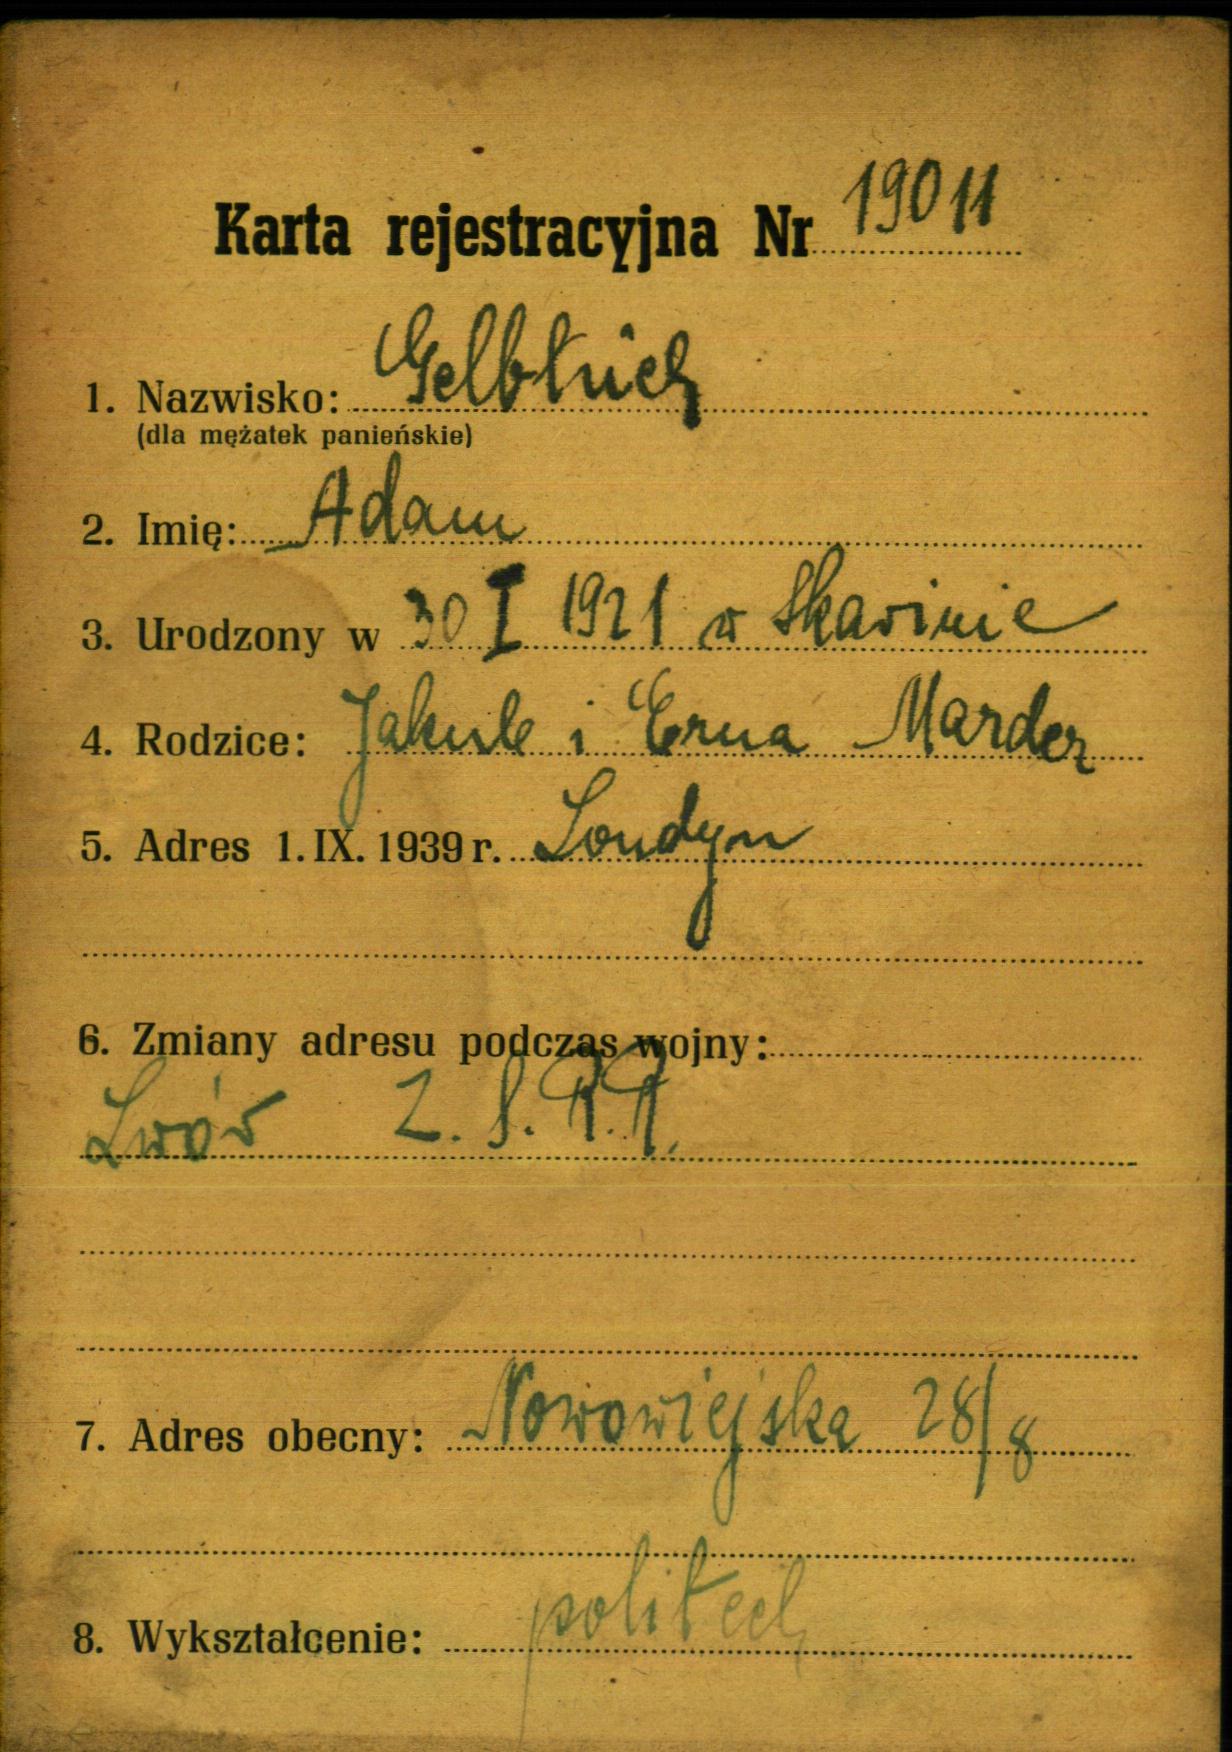 Karta rejestracyjna Nr 19011
1. Nazwisko:
(dla mężatek panieńskie)
2. Imię: Adam
3. Urodzony w 30 I 1921 w Skawinie
4. Rodzice: Jakub i Erna Marder
5. Adres 1. IX. 1939 r. Londyn
6. Zmiany adresu podczas wojny:
Lwów Z. S. R. R.
7. Adres obecny: Nowowiejska 28/8
8. Wykształcenie: politech